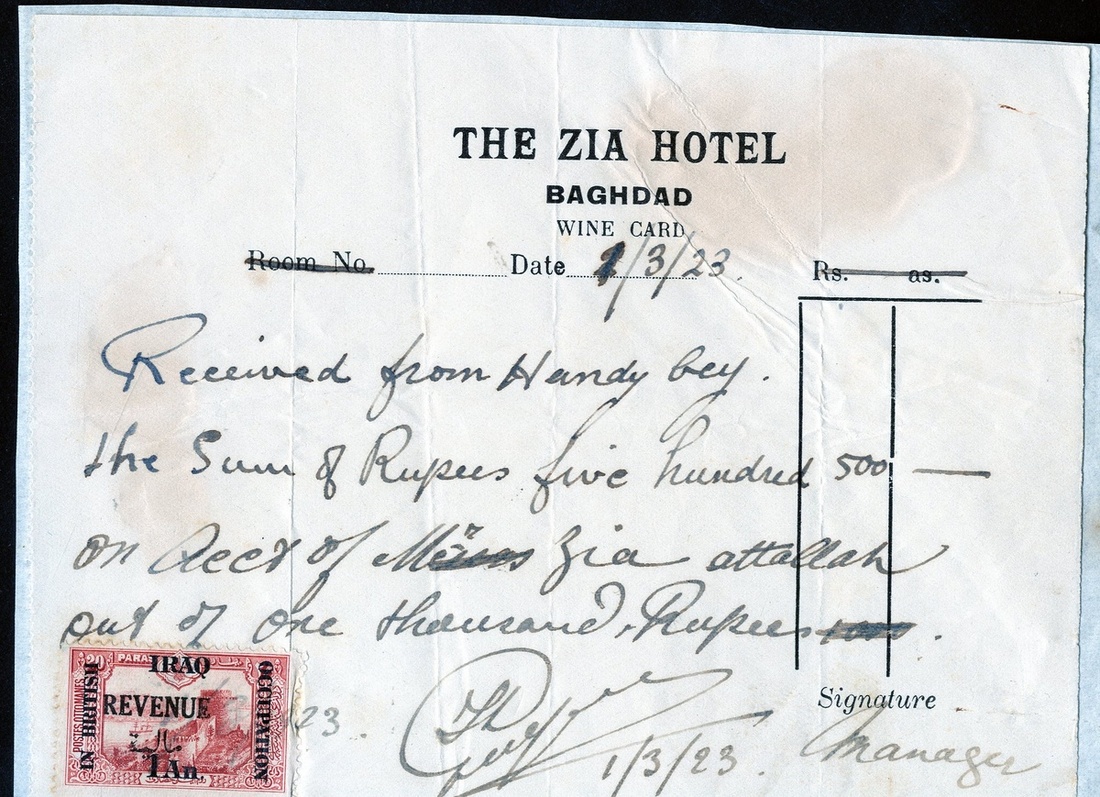 THE ZIA HOTEL
BAGHDAD
WINE CARD
Room No. Date 1/3/23. Rs. as.
Received from Handy bey.
the Sum of Rupees five hundred 500 —
on Acct of Zia attallah
out of one thousand Rupees .
Signature
23.
1/3/23. Manager
20 PARA
POSTES OTTOMANES
IRAQ
IN BRITISH
OCCUPATION
REVENUE
1 An.